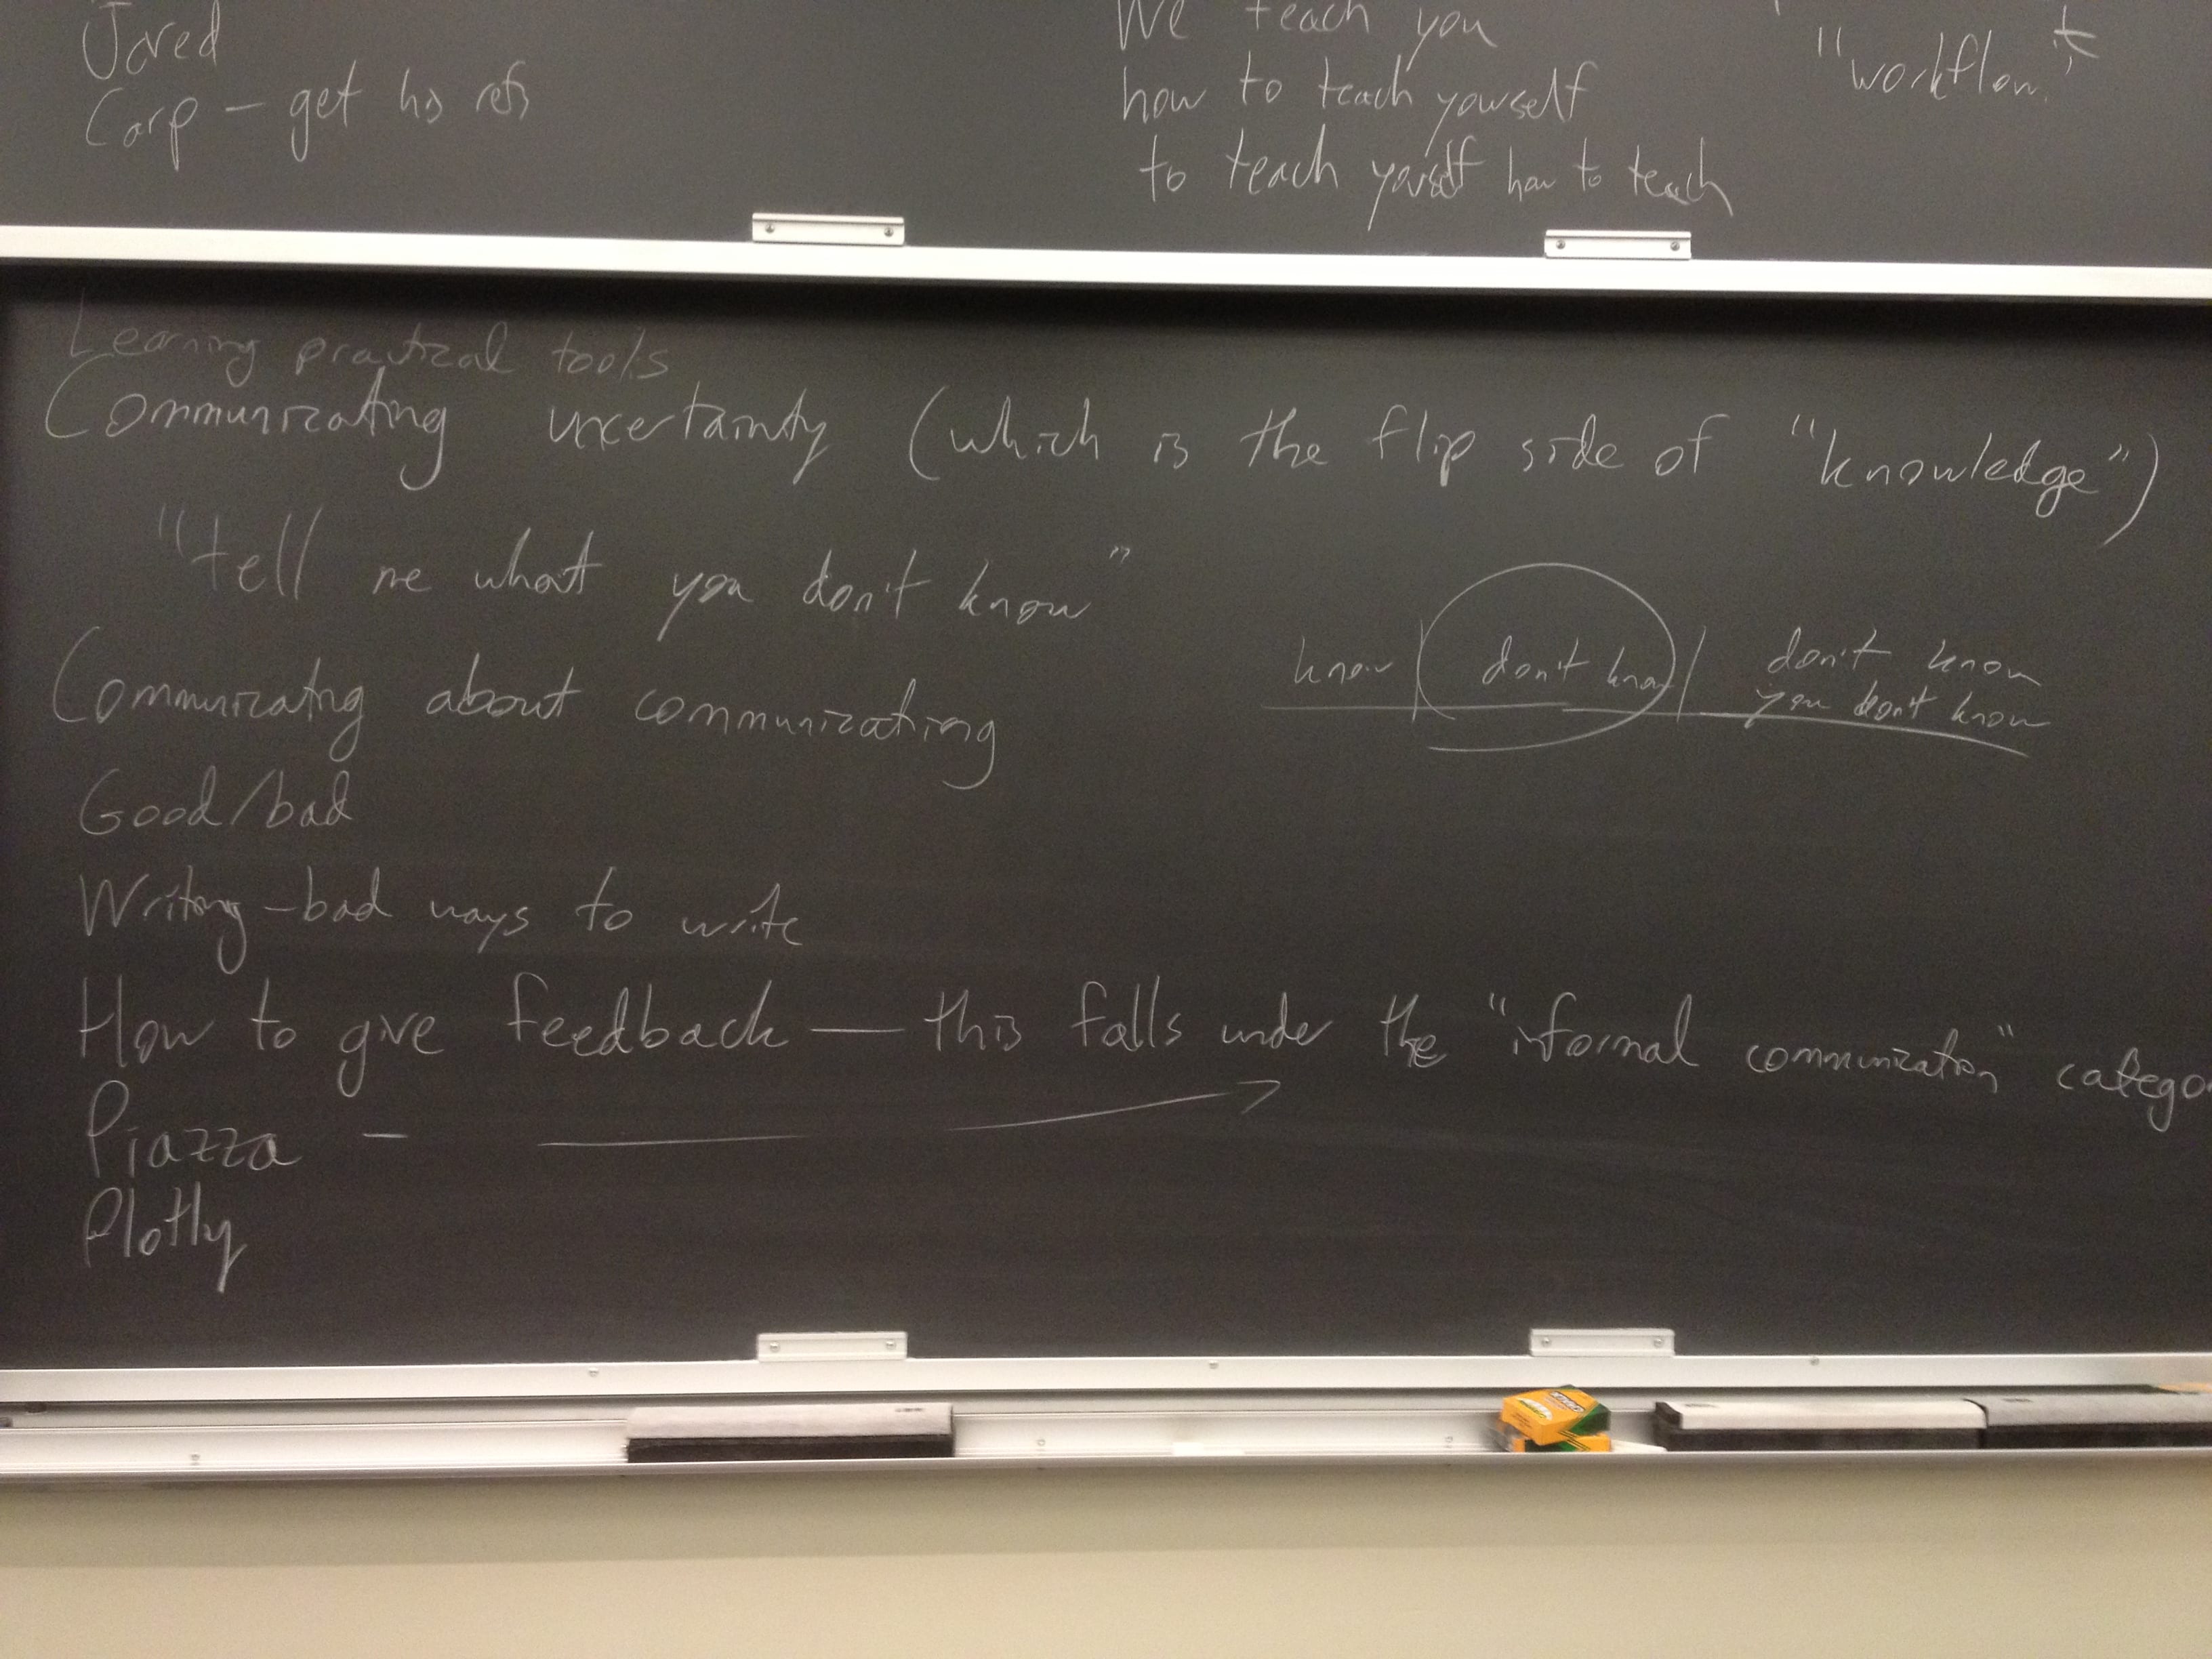 Jared
Carp – get his refs
We teach you
how to teach yourself
to teach yourself how to teach
"workflow"
Learning practical tools
Communicating uncertainty (which is the flip side of "knowledge")
"tell me what you don't know"
know | don't know | don't know
you don't know
Communicatng about communicating
Good/bad
Writing – bad ways to write
How to give feedback — this falls under the "informal communication" catego
Piazza –
Plotly